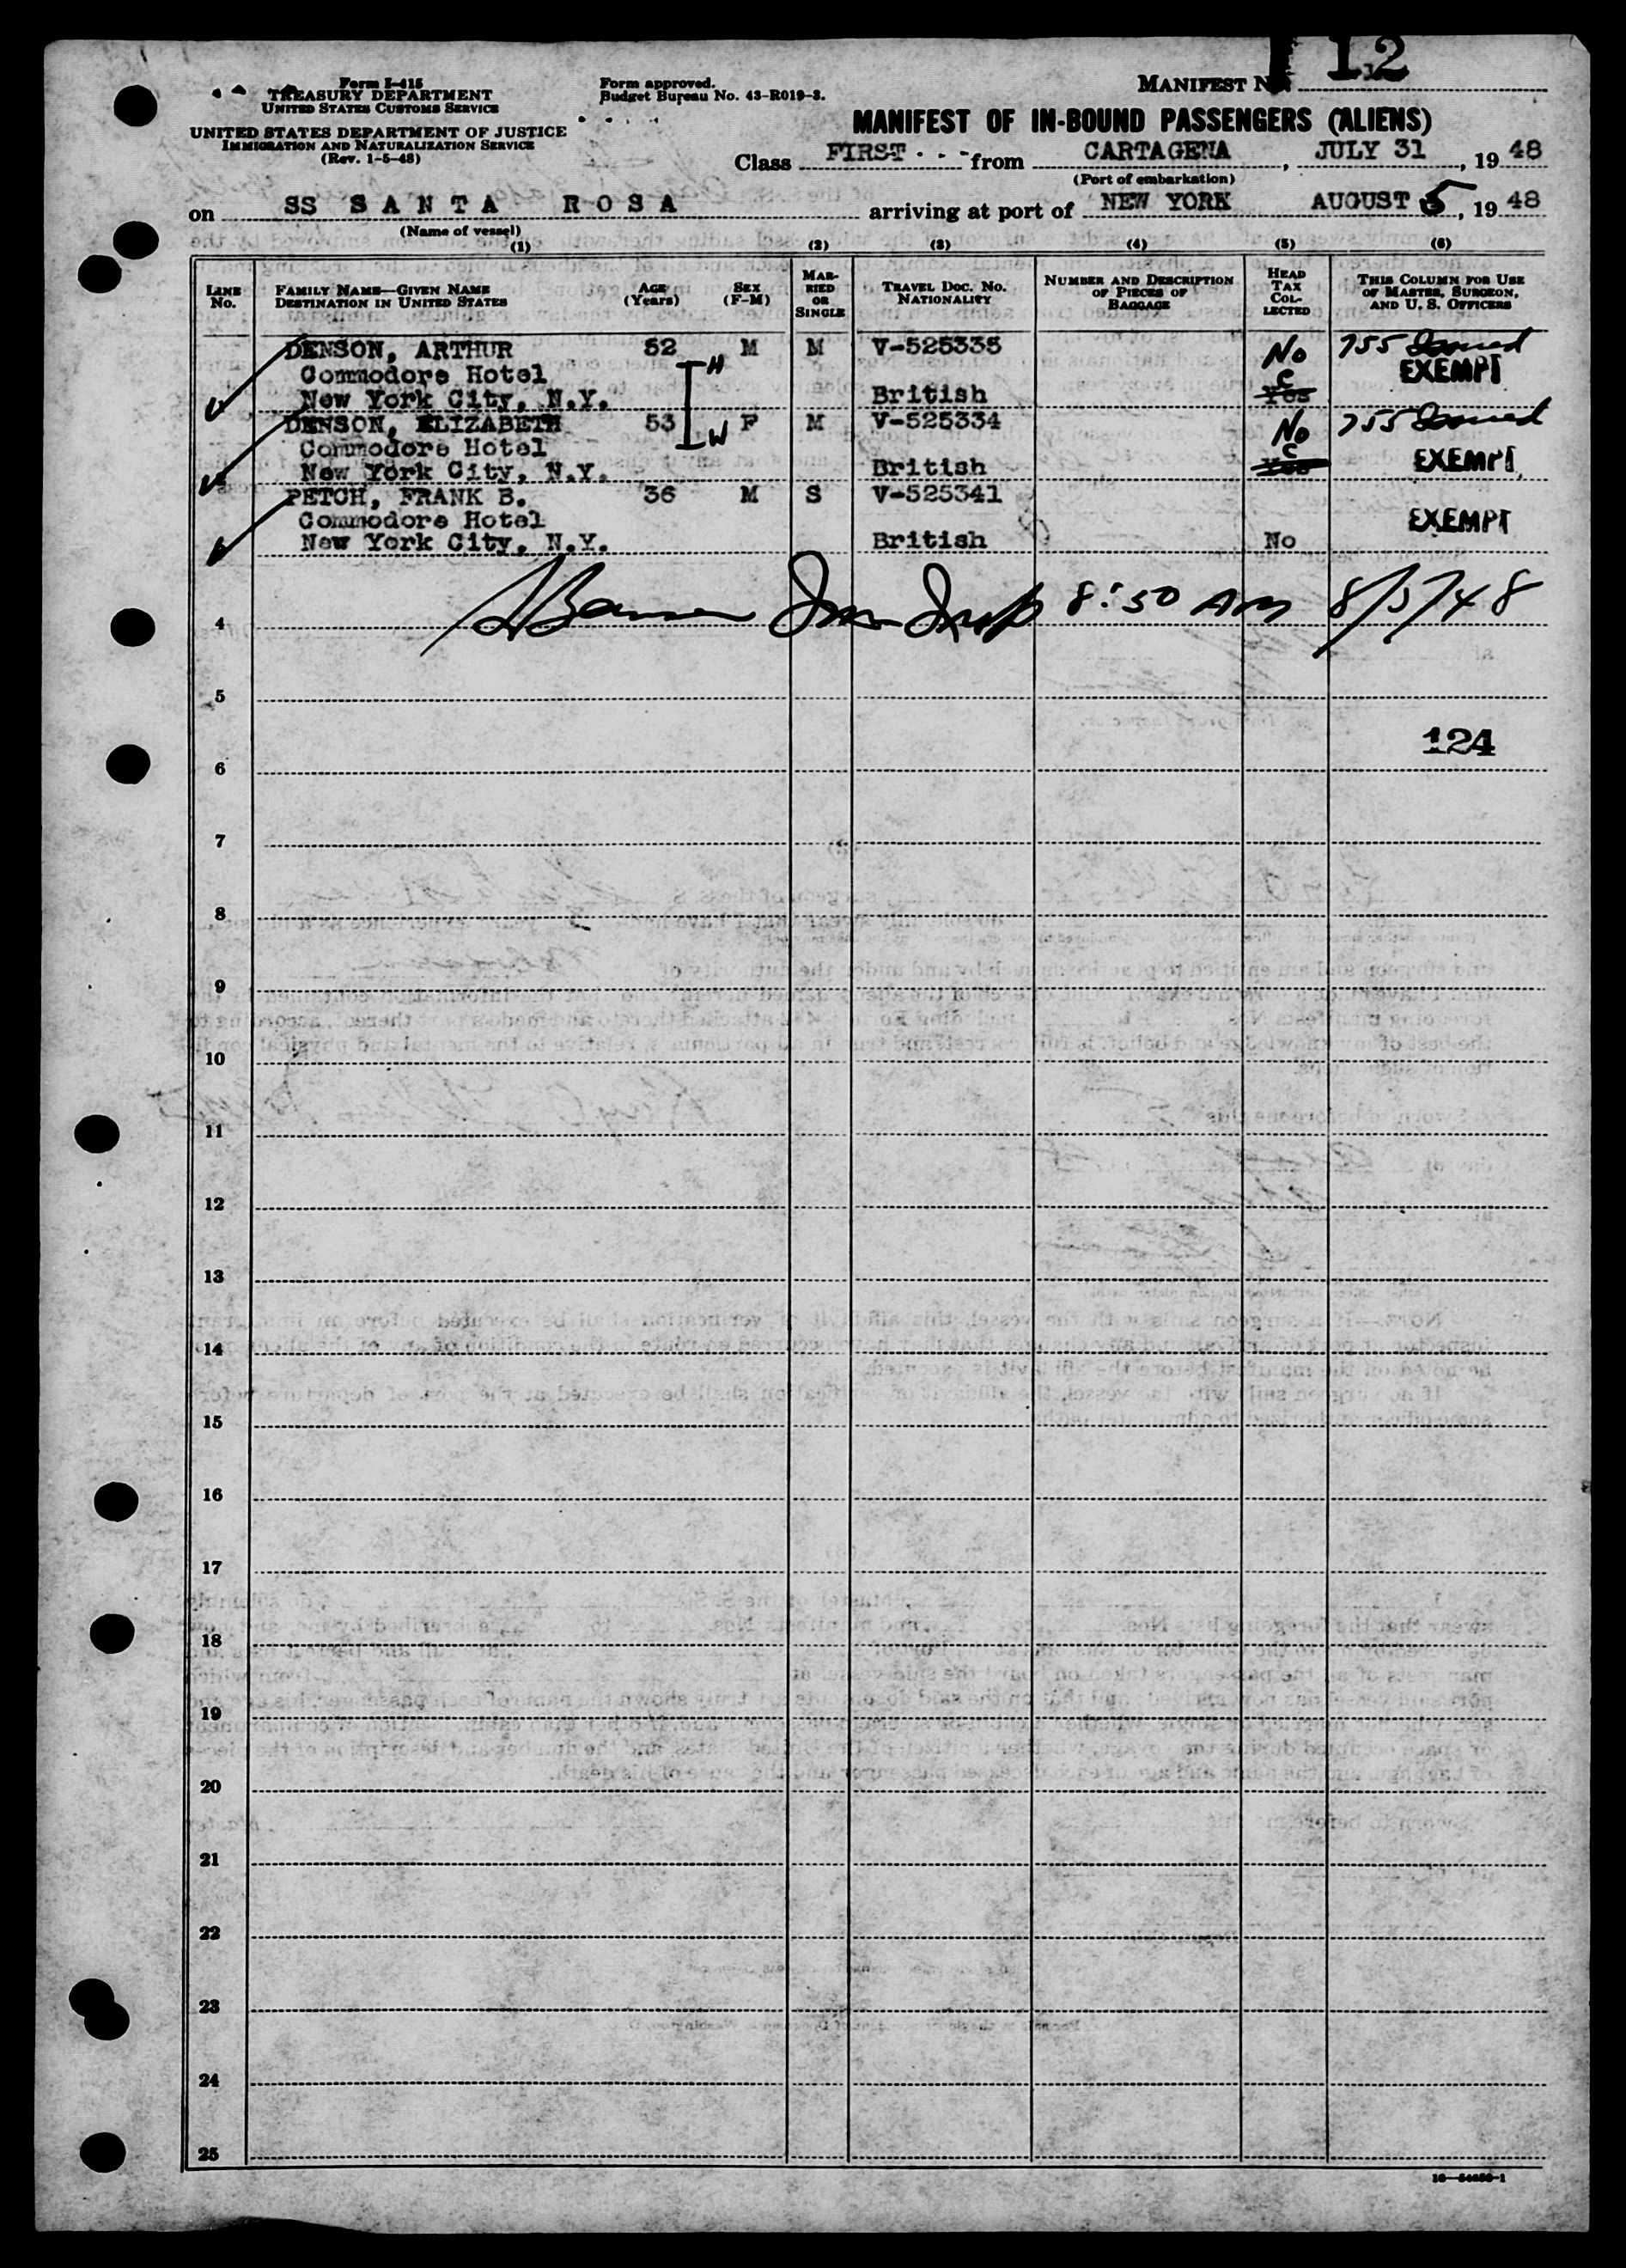 Form I-415
TREASURY DEPARTMENT
UNITED STATES CUSTOMS SERVICE
UNITED STATES DEPARTMENT OF JUSTICE
IMMIGRATION AND NATURALIZATION SERVICE
(Rev. 1-5-48)
Form approved.
Budget Bureau No. 43-R019-3.
MANIFEST No. 12
MANIFEST OF IN-BOUND PASSENGERS (ALIENS)
Class FIRST from CARTAGENA, JULY 31, 19 48
(Port of embarkation)
on SS SANTA ROSA arriving at port of NEW YORK AUGUST 5, 19 48
(Name of vessel)
(1) (2) (3) (4) (5) (6)
LINE No. FAMILY NAME—GIVEN NAME DESTINATION IN UNITED STATES AGE (Years) SEX (F-M) MARRIED OR SINGLE TRAVEL DOC. NO. NATIONALITY NUMBER AND DESCRIPTION OF PIECES OF BAGGAGE HEAD TAX COLLECTED THIS COLUMN FOR USE OF MASTER, SURGEON, AND U. S. OFFICERS
DENSON, ARTHUR 52 M M V-525335 No 755 Issued
Commodore Hotel H C EXEMPT
New York City, N.Y. British Yes
DENSON, ELIZABETH 53 W F M V-525334 No 755 Issued
Commodore Hotel C
New York City, N.Y. British Yes EXEMPT
PETCH, FRANK B. 36 M S V-525341
Commodore Hotel EXEMPT
New York City, N.Y. British No
4 8:50 AM 8/5/48
5
124
6
7
8
9
10
11
12
13
14
15
16
17
18
19
20
21
22
23
24
25